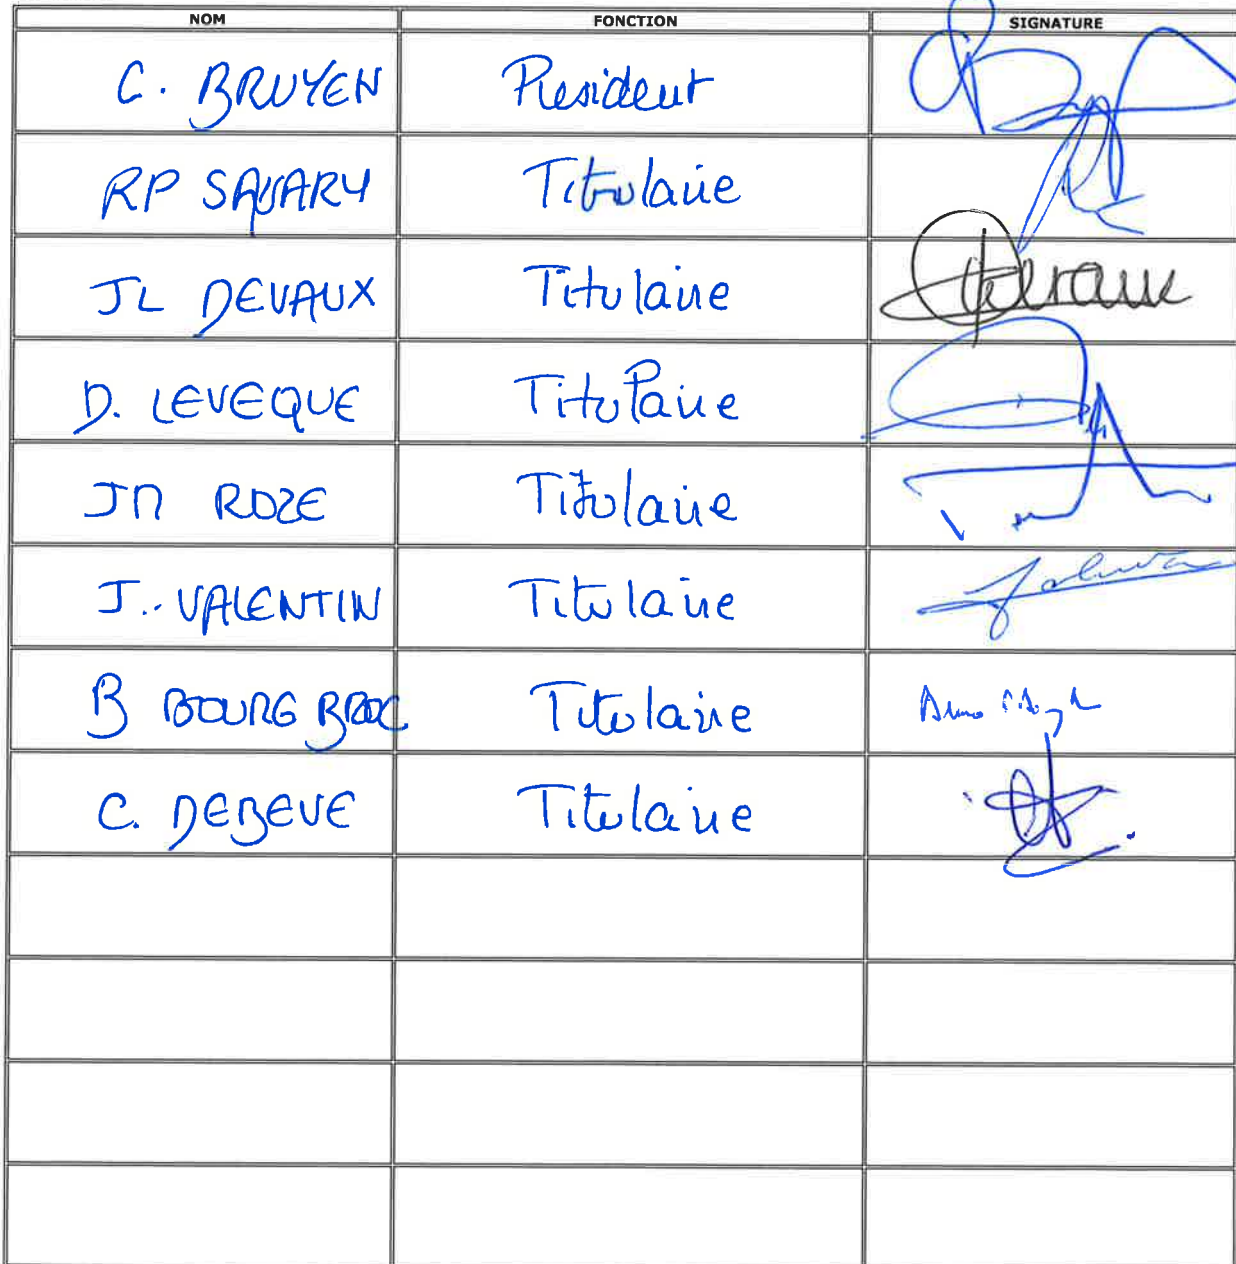 NOM FONCTION SIGNATURE
C. BRUYEN President
RP SAVARY Titulaire
JL DEVAUX Titulaire
D. LEVEQUE Titulaire
JM ROZE Titulaire
J. VALENTIN Titulaire
B BOURG BROC Titulaire
C. DEBEVE Titulaire